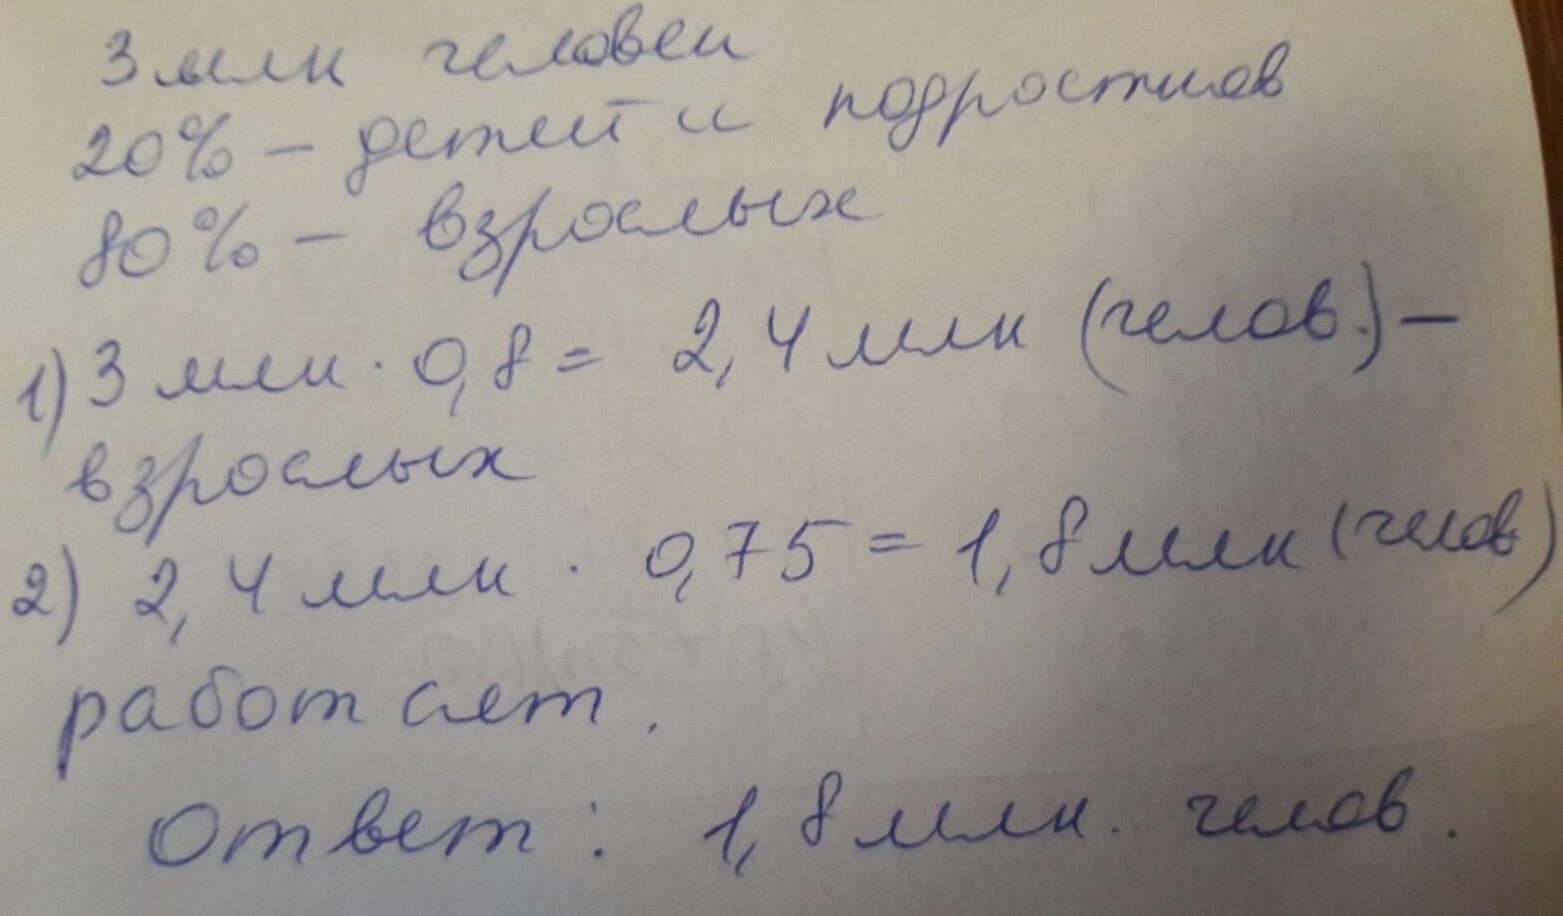 3 млн человек
20% – детей и подростков
80% – взрослых
1) 3 млн · 0,8 = 2,4 млн (челов.) –
взрослых
2) 2,4 млн · 0,75 = 1,8 млн (челов)
работает.
Ответ: 1,8 млн. челов.